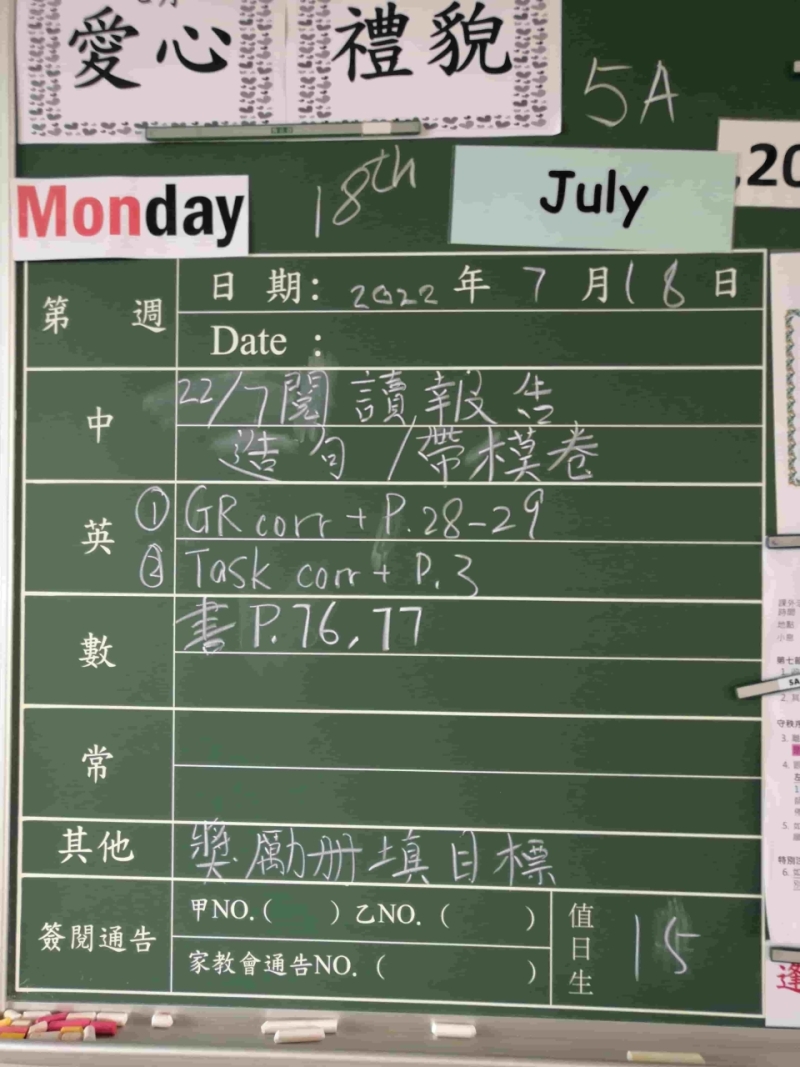 愛心 禮貌
5A
Monday 18th July
第 週 日 期: 2022 年 7 月 18 日
Date :
中 22/7 閱讀報告
造句 / 帶模卷
英 ① GR corr + P.28-29
② Task corr + P.3
數 書 P.76, 77
常
其他 獎勵册填目標
簽閱通告 甲NO.( ) 乙NO. ( )
家教會通告NO. ( )
值日生 15